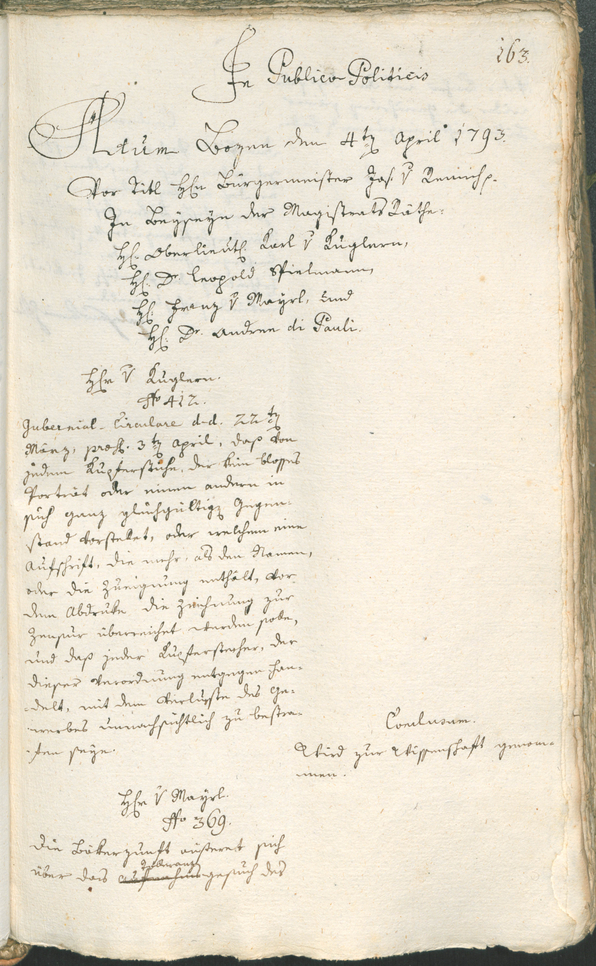 163.
In Publico Politicis
Actum Bozen den 4tn April 1793.
Vor Titl Hhn Bürgermeister Jos. v Remich p.
In Beyseyn der Magistrats Räthe:
Hh. Oberlieut. Karl v Kuglern,
Hh. Dr. Leopold Spielmann,
Hh. Franz v Mayrl, und
Hh. Dr. Andree di Pauli.
Hhr v Kuglern.
No 412.
Gubernial-Circulare d.d. 22tn
März, præs. 3tn April, daß von
jedem Kupferstiche, der kein blosses
Porträt oder einen andern in
sich ganz gleichgültign Gegen-
stand vorstellet, oder welchem eine
Aufschrift, die mehr als den Namen,
oder die Zueignung enthält, vor
dem Abdruke die Zeichnung zur
Zensur überreichet werden solle,
und daß jeder Kupferstecher, der
dieser Verordnung entgegen han-
delt, mit dem Verluste des Ge-
werbes unnachsichtlich zu bestra-
fen seye.
Conclusum.
Wird zur Wissenschaft genom-
men.
Hhr v Mayrl.
No 369.
Die Bäkerzunft äußeret sich
über das gesuch des